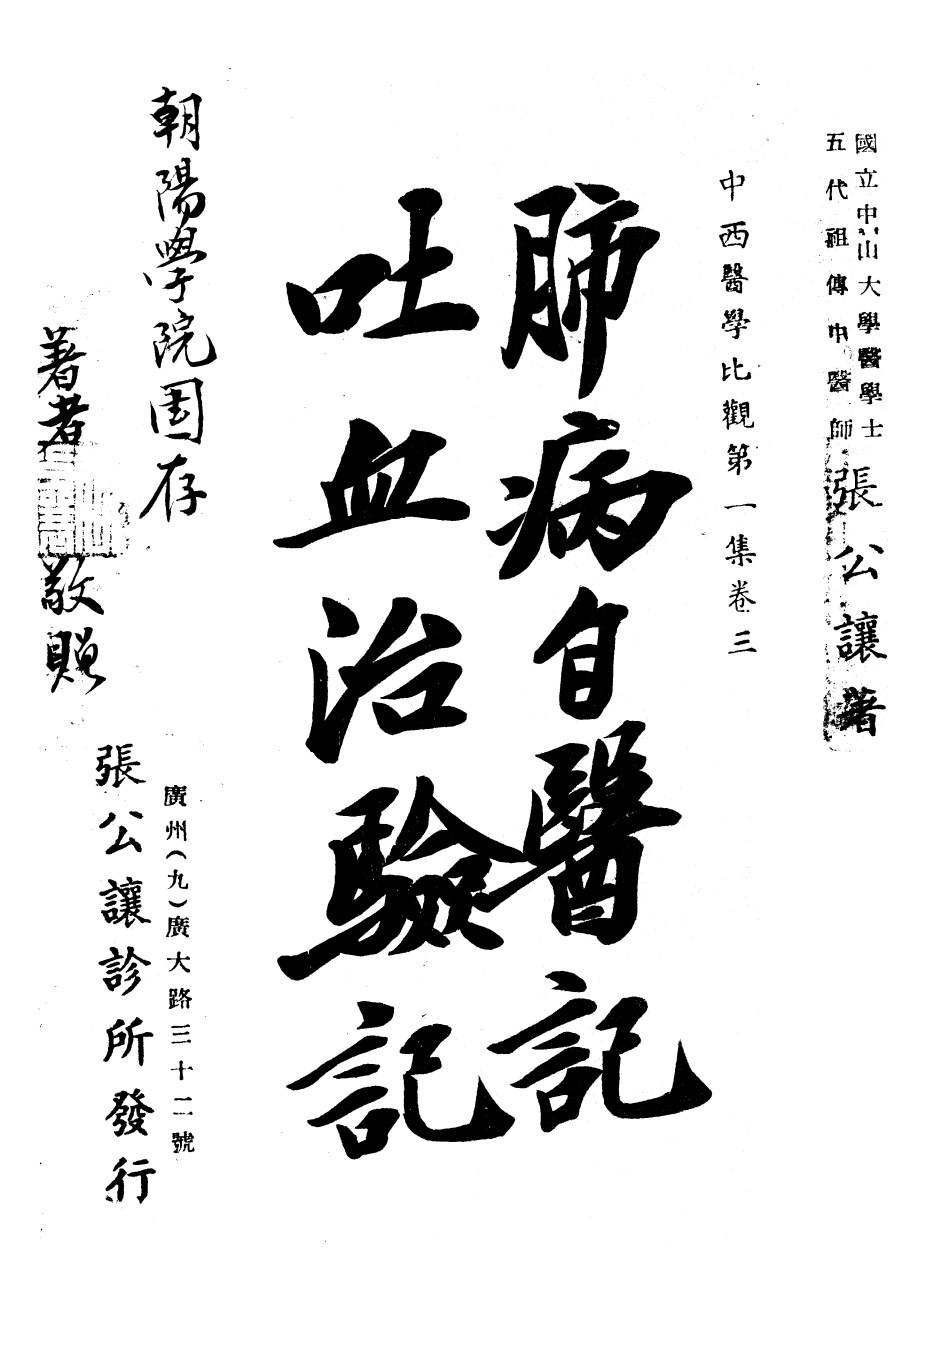 國立中山大學醫學士
五代祖傳中醫師
張公讓著
中西醫學比觀第一集卷三
肺病自醫記
吐血治驗記
朝陽學院圖存
著者
敬贈
廣州(九)廣大路三十二號
張公讓診所發行